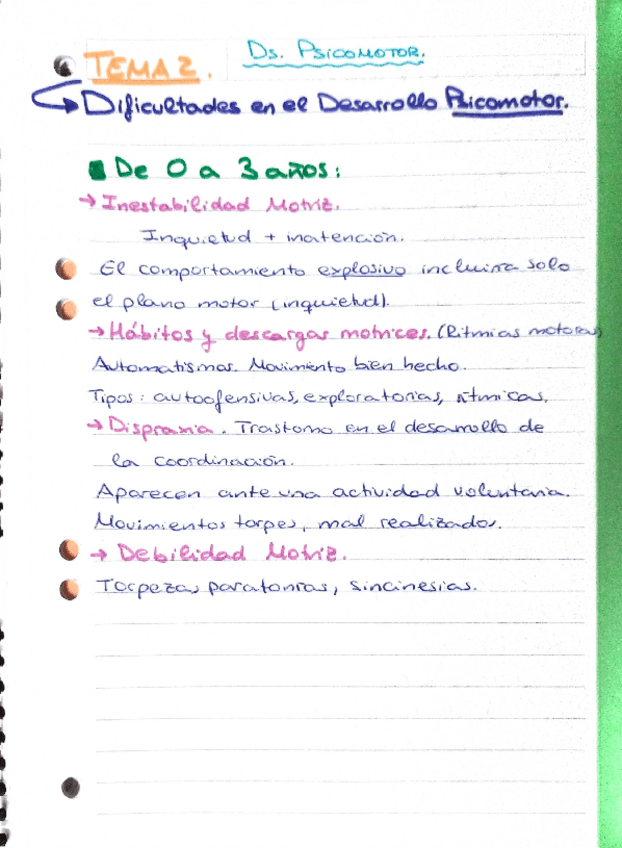 Ds. Psicomotor.
TEMA 2.
Dificultades en el Desarrollo Psicomotor.
De 0 a 3 años:
→ Inestabilidad Motriz.
Inquietud + inatención.
El comportamiento explosivo incluira solo
el plano motor (inquietud).
→ Hábitos y descargas motrices. (Ritmias motoras)
Automatismos. Movimiento bien hecho.
Tipos: autoofensivas, exploratorias, ritmicas.
→ Dispraxia. Trastorno en el desarrollo de
la coordinación.
Aparecen ante una actividad voluntaria.
Movimientos torpes, mal realizados.
→ Debilidad Motriz.
Torpeza, paratonias, sincinesias.